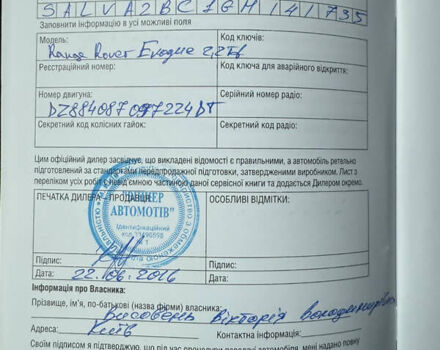 SALVA2BC1GH141735
Заповнити інформацію в усі можливі поля
Модель: Код ключів:
Range Rover Evoque 2,2
Реєстраційний номер: Код ключа для аварійного відкриття:
Номер двигуна: Серійний номер радіо:
Секретний код колісних гайок: Секретний код радіо:
Цим офіційний дилер засвідчує, що викладені відомості є правильними, а автомобіль ретельно
підготовлений за стандартами передпродажної підготовки, затвердженими виробником. Лист з
переліком усіх робіт є невід'ємною частиною даної сервісної книги та додається Дилером окремо.
ПЕЧАТКА ДИЛЕРА - ПРОДАВЦЯ ОСОБЛИВІ ВІДМІТКИ:
АВТОМОТІВ"
Ідентифікаційний
код
Підпис: Підпис:
Дата: 22.06.2016 Дата:
Інформація про Власника:
Прізвище, ім'я, по-батькові (назва фірми) власника:
Вікторія
Адреса: Київ Контактна інформація:
Своїм підписом я підтверджую, що під час процедури передачі автомобіля, мені надано повну